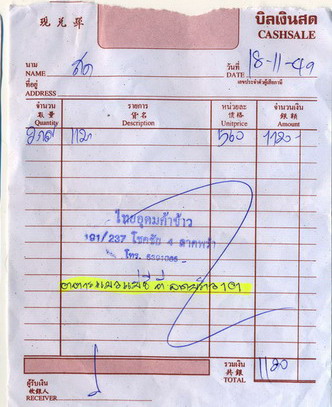 現兑單 บิลเงินสด
CASHSALE
นาม
NAME สด วันที่
DATE 18-11-49
ที่อยู่ เลขประจำตัวผู้เสียภาษี
ADDRESS
จำนวน รายการ หน่วยละ จำนวนเงิน
取量 貨名 價格 銀額
Quantity Description Unitprice Amount
560 1120-
ไทยอุดมค้าข้าว
191/237 โชคชัย 4 ลาดพร้าว
โทร.
รวมเงิน
共銀
TOTAL 1120
ผู้รับเงิน
收銀人
RECEIVER